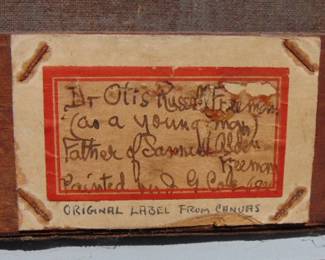 Dr Otis Russell Freeman
(as a young man)
Father of Samuel Alden
Freeman
Painted by J G Cole
ORIGINAL LABEL FROM CANVAS